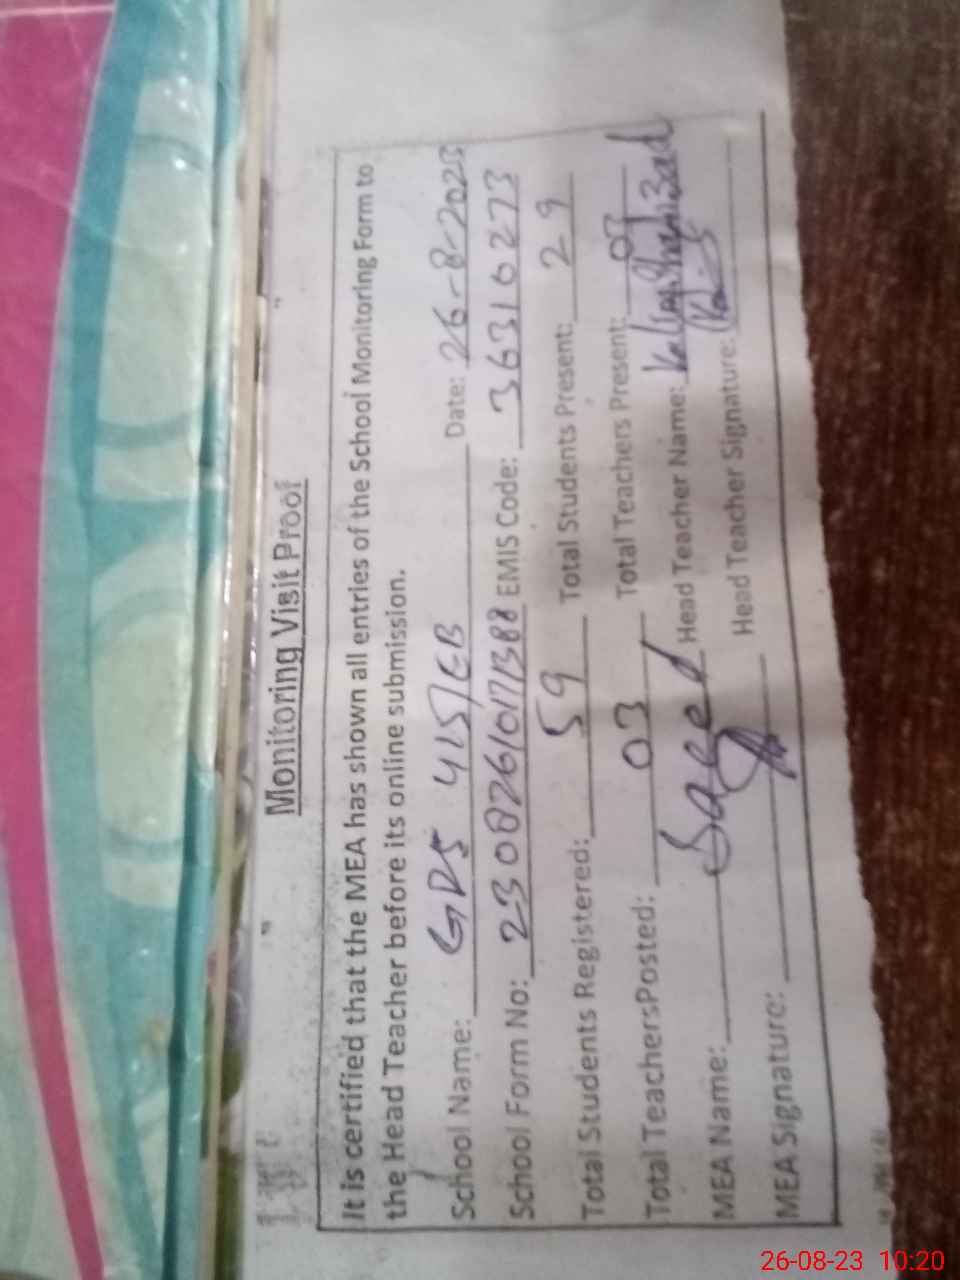 Monitoring Visit Proof
It is certified that the MEA has shown all entries of the School Monitoring Form to
the Head Teacher before its online submission.
School Name: GPS 415/EB Date: 26-8-2023
School Form No: 230826/017/388 EMIS Code: 36310273
Total Students Registered: 59 Total Students Present: 29
Total TeachersPosted: 03 Total Teachers Present: 03
MEA Name: Saeed Head Teacher Name: Kalim Shahzad
MEA Signature: Head Teacher Signature:
26-08-23 10:20